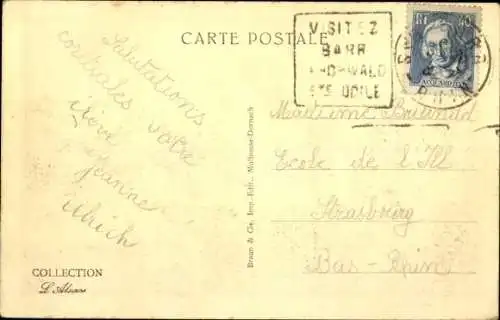 CARTE POSTALE
VISITEZ
BARR
HOHWALD
STE ODILE
RF
JACQUARD
Salutations
cordiales votre
élève
Jeanne
Ulrich
Madame Briand
Ecole de l'Ill
Strasbourg
Bas-Rhin
Braun & Cie, Imp.-Edit., Mulhouse-Dornach
COLLECTION
L'Alsace